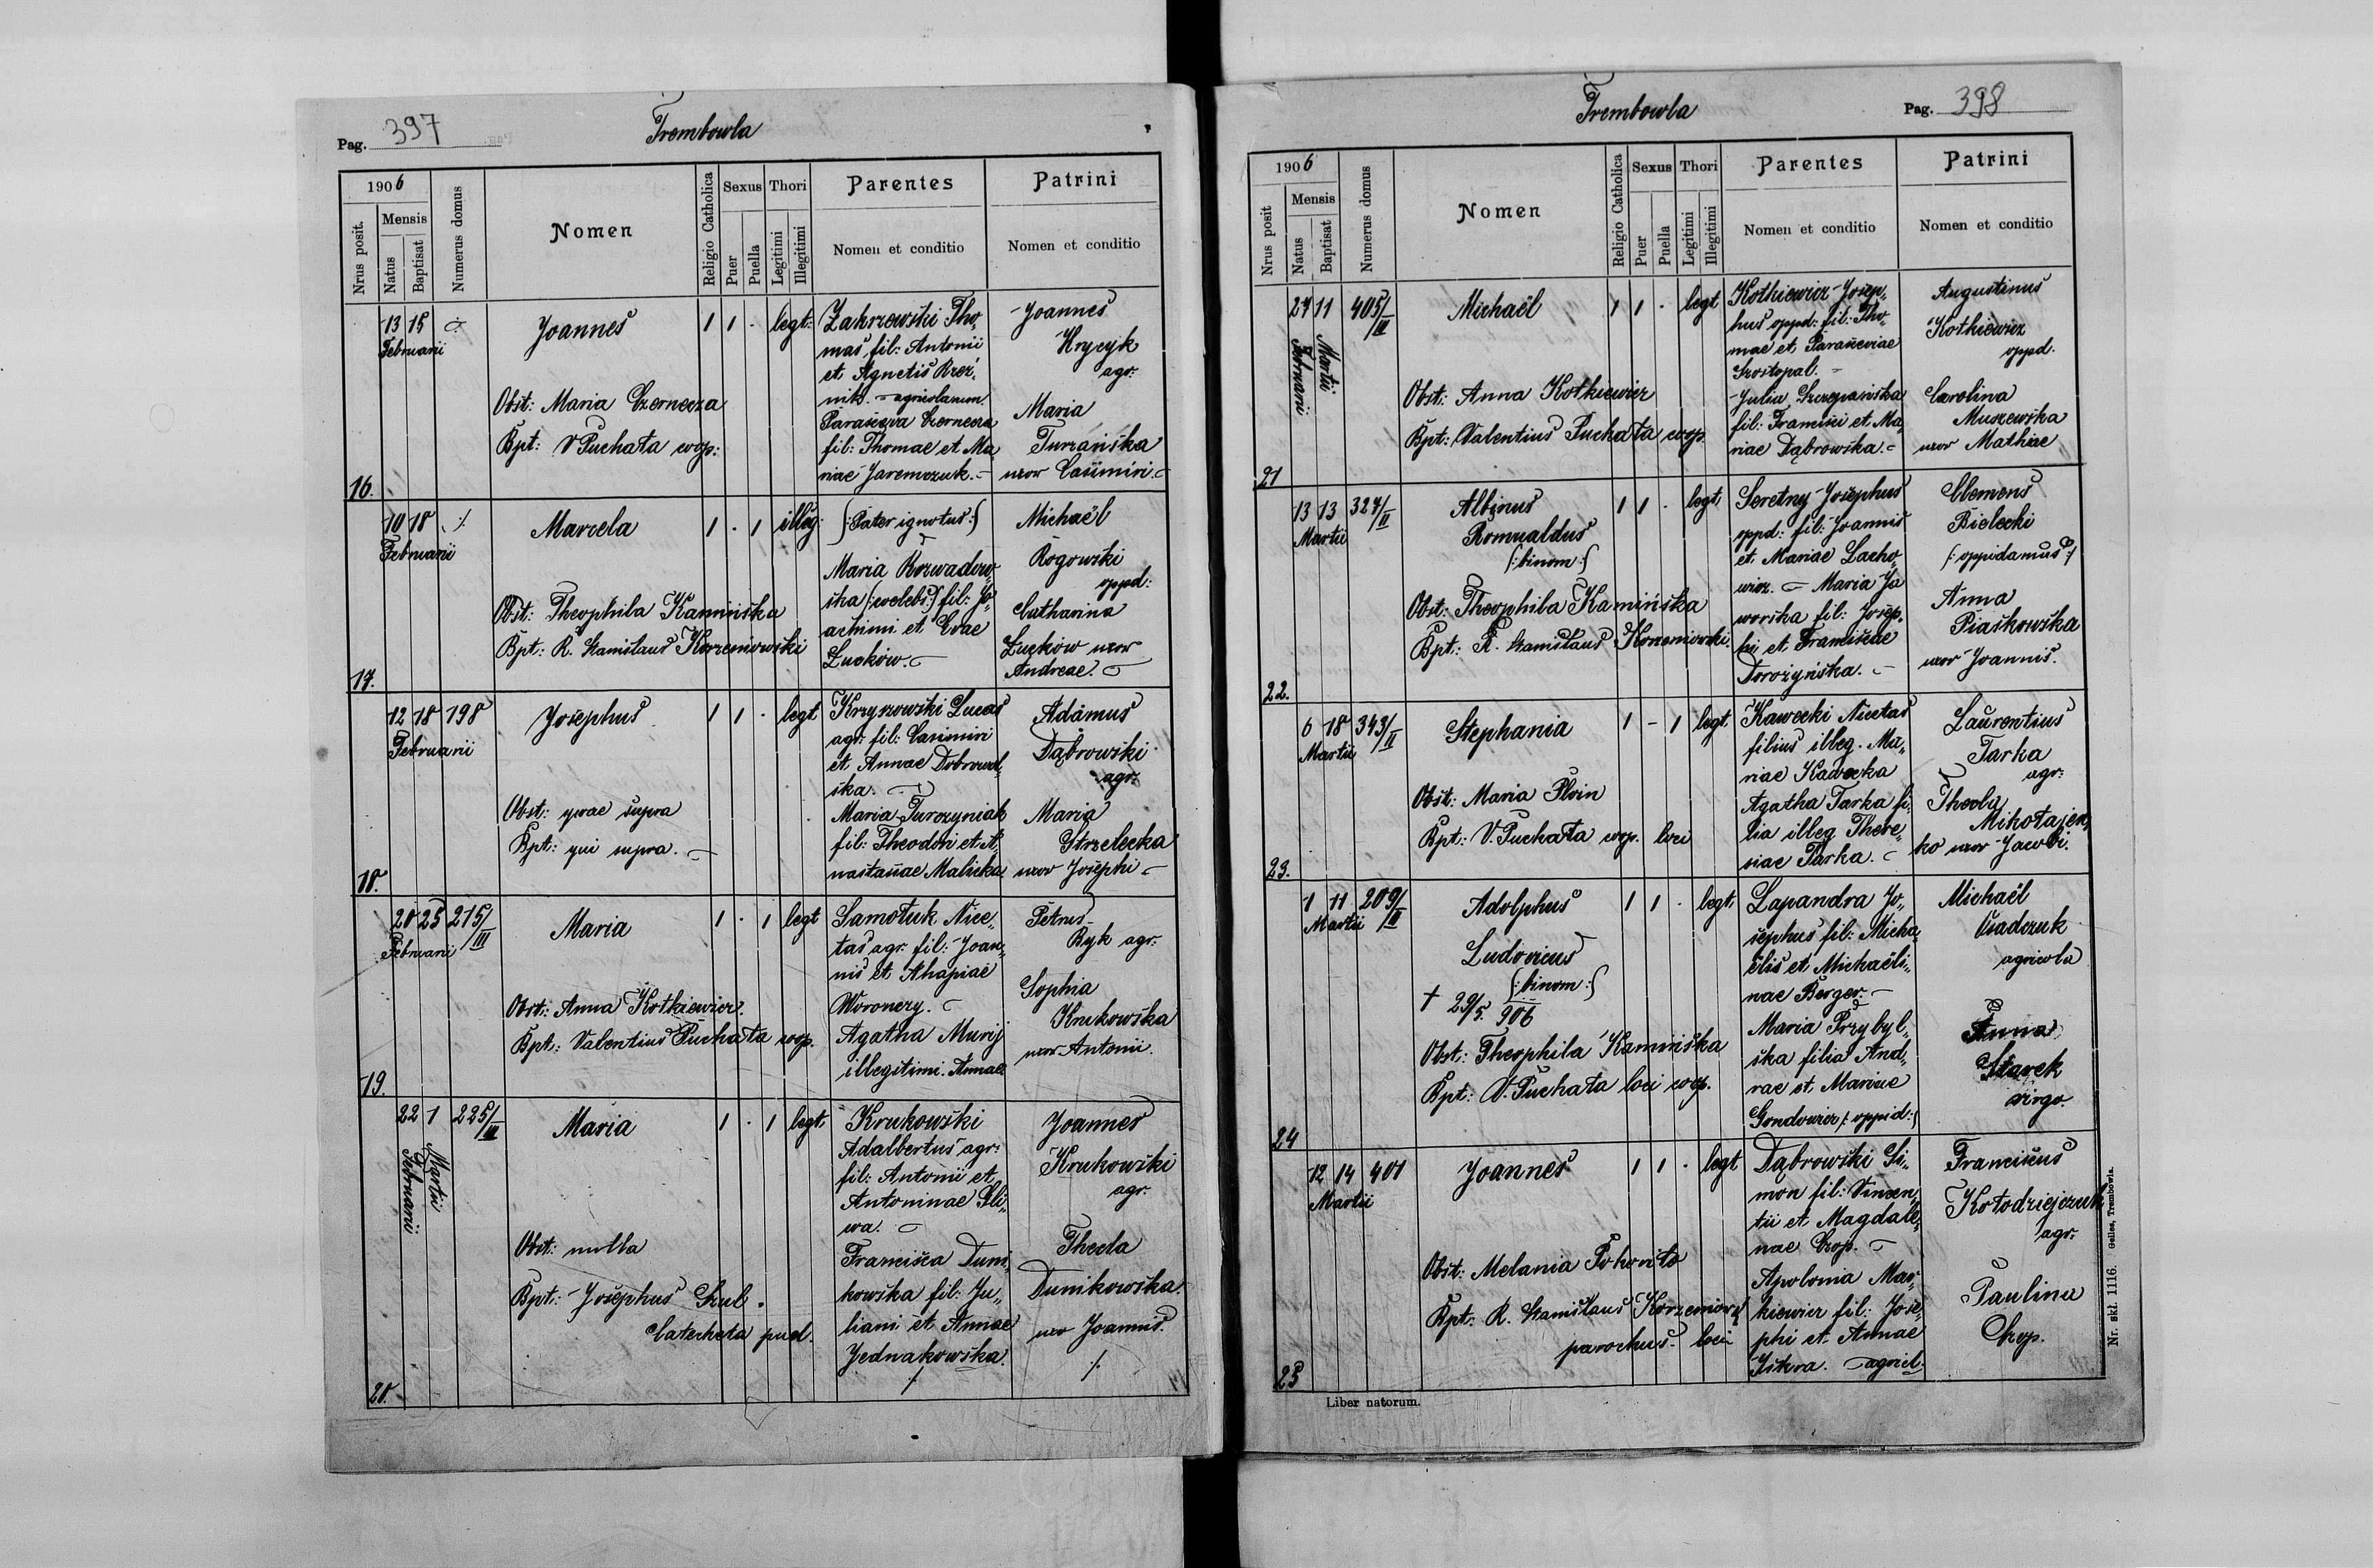 Pag. 397
Trembowla
1906
Nrus posit.
Mensis
Natus
Baptisat
Numerus domus
Nomen
Religio Catholica
Sexus
Puer
Puella
Thori
Legitimi
Illegitimi
Parentes
Nomen et conditio
Patrini
Nomen et conditio
16.
13 15
Februarii
Joannes
Obst: Maria Czernecza
Bpt: V Puchała coop:
1 1 · legt:
Zakrzewski Tho„
mas fil: Antonii
et Agnetis Krzez„
nik. agricolarum.
Parascevia Czernecza
fil: Thomae et Ma„
riae Jaremczuk.
Joannes
Hrycyk
agr:
Maria
Turzańska
uxor Casimiri.
17.
10 18 ./.
Februarii
Marcela
Obst: Theophila Kamińska
Bpt: R. Stanislaus Korzeniowski
1 · 1 illeg:
(:Pater ignotus:)
Maria Rozwadow„
ska (:coelebs:) fil: Jo„
achimi et Evae
Łuców.
Michaël
Rogowski
oppd:
Catharina
Łuczków uxor
Andreae.
18.
12 18 198
Februarii
Josephus
Obst: quae supra
Bpt: qui supra.
1 1 · legt
Krzyszowski Lucas
agr: fil: Casimiri
et Annae Dobrowol„
ska.
Maria Turczyniak
fil: Theodori et A„
nastasiae Malicka
Adamus
Dąbrowski
agr:
Maria
Strzelecka
uxor Josephi
19.
20 25 215/III
Februarii
Maria
Obst: Anna Kotkiewicz.
Bpt: Valentius Puchała coop.
1 · 1 legt
Samotuk Nice„
tas agr: fil: Joan„
nis et Ahapiae
Woronezy.
Agatha Murij
illegitimi. Annae
Petrus
Byk agr:
Sophia
Krukowska
uxor Antonii.
20.
22 1 225/III
Februarii
Martii
Maria
Obst: nulla
Bpt: Josephus Szul.
Catecheta puel.
1 · 1 legt,
Krukowski
Adalbertus agr:
fil: Antonii et
Antoninae Sli„
wa.
Francisca Duni„
kowska fil: Ju„
liani et Annae
Jednakowska.
Joannes
Krukowski
agr:
Thecla
Dunikowska.
uxo Joannis.
./.
Trembowla
Pag. 398
1906
Nrus posit
Mensis
Natus
Baptisat
Numerus domus
Nomen
Religio Catholica
Sexus
Puer
Puella
Thori
Legitimi
Illegitimi
Parentes
Nomen et conditio
Patrini
Nomen et conditio
21
27 11 405/III
Februarii
Martii
Michaël
Obst: Anna Kotkiewicz
Bpt: Valentius Puchała coop.
1 1 · legt
Kotkiewicz Josep„
hus oppd: fil: Tho„
mae et Parasceviae
Szostopal.
Julia Szczepańska
fil: Francisci et Ma„
riae Dąbrowska.
Augustinus
Kotkiewicz
oppd.
Carolina
Muszewska
uxor Mathiae
22.
13 13 327/II
Martii
Albinus
Romualdus
(:binom:)
Obst: Theophila Kamińska
Bpt: R. Stanislaus Korzeniowski.
1 1 · legt,
Seretny Josephus
oppd: fil: Joannis
et Mariae Lacho„
wicz. Maria Ja
worska fil: Josep„
hi et Franciscae
Dorożyńska.
Clemens
Bielecki
(:oppidanus:)
Anna
Piaskowska
uxor Joannis.
23.
6 18 343/II
Martii
Stephania
Obst: Maria Płoin
Bpt: V. Puchała coop. loci
1 – 1 legt.
Kawecki Nicetas
filius illeg. Ma„
riae Kawecka
Agatha Tarka fi„
lia illeg There„
siae Tarka.
Laurentius
Tarka
agr:
Thecla
Mikołajen„
ko uxor Jacobi.
24
1 11 209/II
Martii
Adolphus
Ludovicus
(:binom:)
† 29/5. 906
Obst: Theophila Kamińska
Bpt: V. Puchała loci coop.
1 1 · legt,
Lapandra Jo„
sephus fil: Micha„
ëlis et Michaëli„
nae Berger.
Maria Przybyl„
ska filia And„
rae et Mariae
Gondowicz (:oppid:)
Michaël
Osadczuk
agricola
Anna
Starek
virgo.
25
12 14 401
Martii
Joannes
Obst: Melania Pohoriło
Bpt: R. Stanislaus Korzeniowski
parochus loci
1 1 · legt
Dąbrowski Si„
mon fil: Vincen„
tii et Magdale„
nae Czop.
Apolonia Mar„
kiewicz fil: Jose„
phi et Annae
Iskra. agricol.
Franciscus
Kołodziejczuk
agr:
Paulina
Czop.
Liber natorum.
Nr. skł. 1116. Gelles, Trembowla.